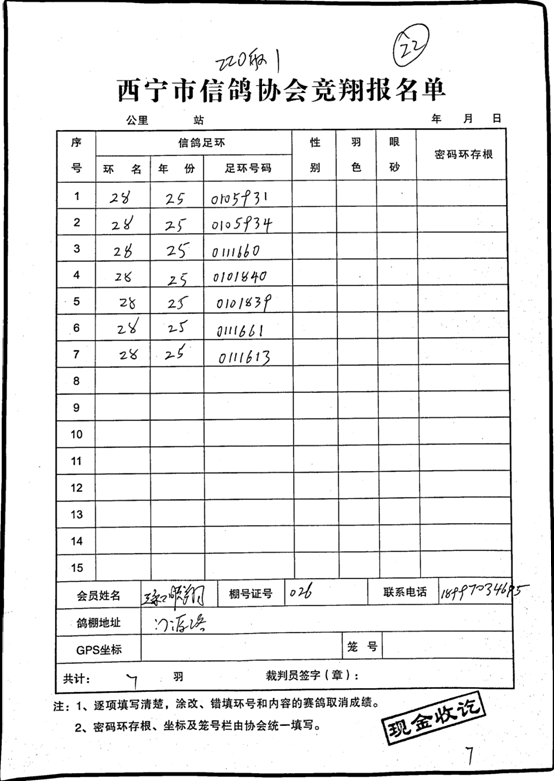 220取1
22
西宁市信鸽协会竞翔报名单
公里 站 年 月 日
序号 信鸽足环 性别 羽色 眼砂 密码环存根
环名 年份 足环号码
1 28 25 0105931
2 28 25 0105934
3 28 25 0111660
4 28 25 0101840
5 28 25 0101839
6 28 25 0111661
7 28 25 0111613
8
9
10
11
12
13
14
15
会员姓名 翔 棚号证号 026 联系电话 18997034695
鸽棚地址
GPS坐标 笼号
共计: 7 羽 裁判员签字(章):
注:1、逐项填写清楚,涂改、错填环号和内容的赛鸽取消成绩。
2、密码环存根、坐标及笼号栏由协会统一填写。
现金收讫
7